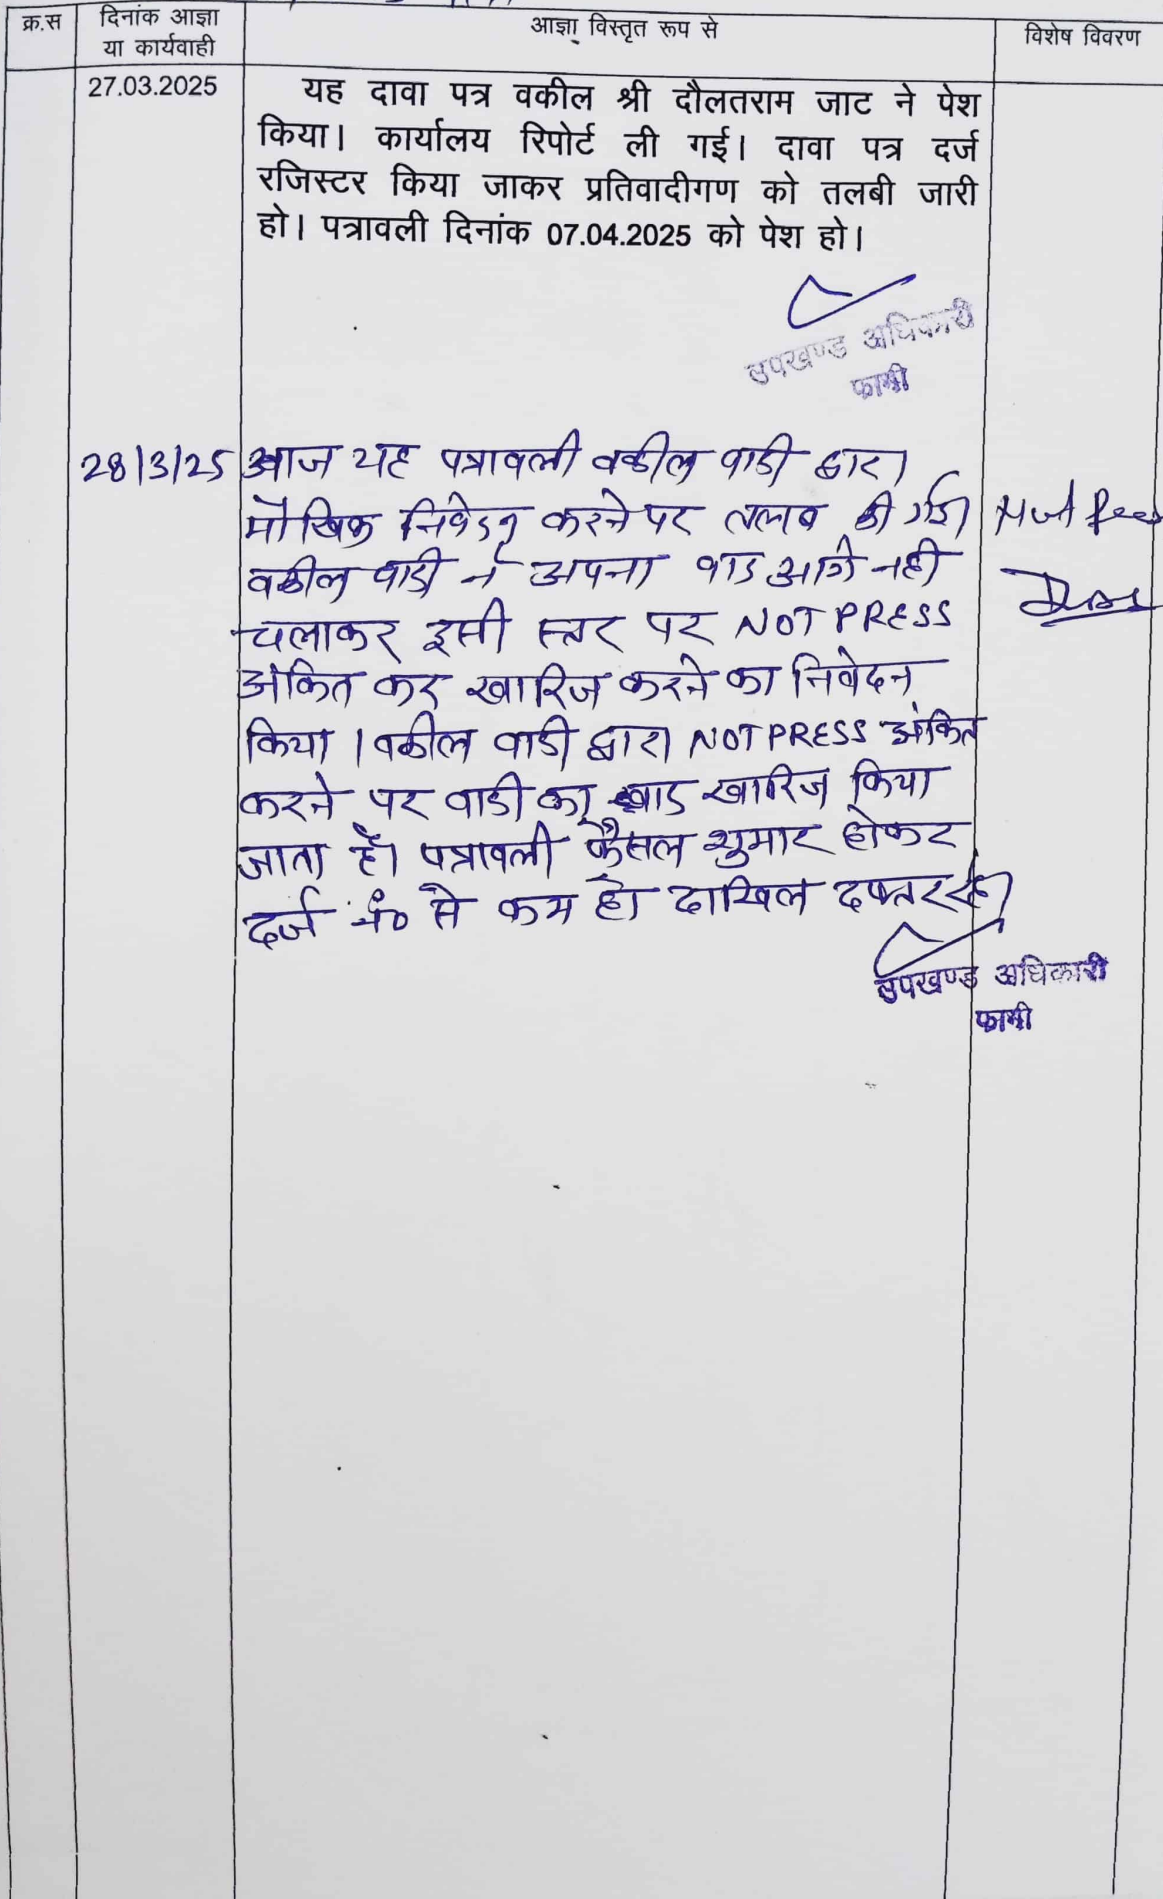 क्र.स
दिनांक आज्ञा
या कार्यवाही
आज्ञा विस्तृत रूप से
विशेष विवरण
27.03.2025
यह दावा पत्र वकील श्री दौलतराम जाट ने पेश
किया। कार्यालय रिपोर्ट ली गई। दावा पत्र दर्ज
रजिस्टर किया जाकर प्रतिवादीगण को तलबी जारी
हो। पत्रावली दिनांक 07.04.2025 को पेश हो।
उपखण्ड अधिकारी
फागी
28/3/25 आज यह पत्रावली वकील वादी द्वारा
मौखिक निवेदन करने पर तलब की गई।
वकील वादी ने अपना वाद आगे नही
चलाकर इसी स्तर पर NOT PRESS
अंकित कर खारिज करने का निवेदन
किया। वकील वादी द्वारा NOT PRESS अंकित
करने पर वादी का वाद खारिज किया
जाता है। पत्रावली फैसल शुमार होकर
दर्ज नं० से कम हो दाखिल दफ्तर रहे।
Not Press
उपखण्ड अधिकारी
फागी